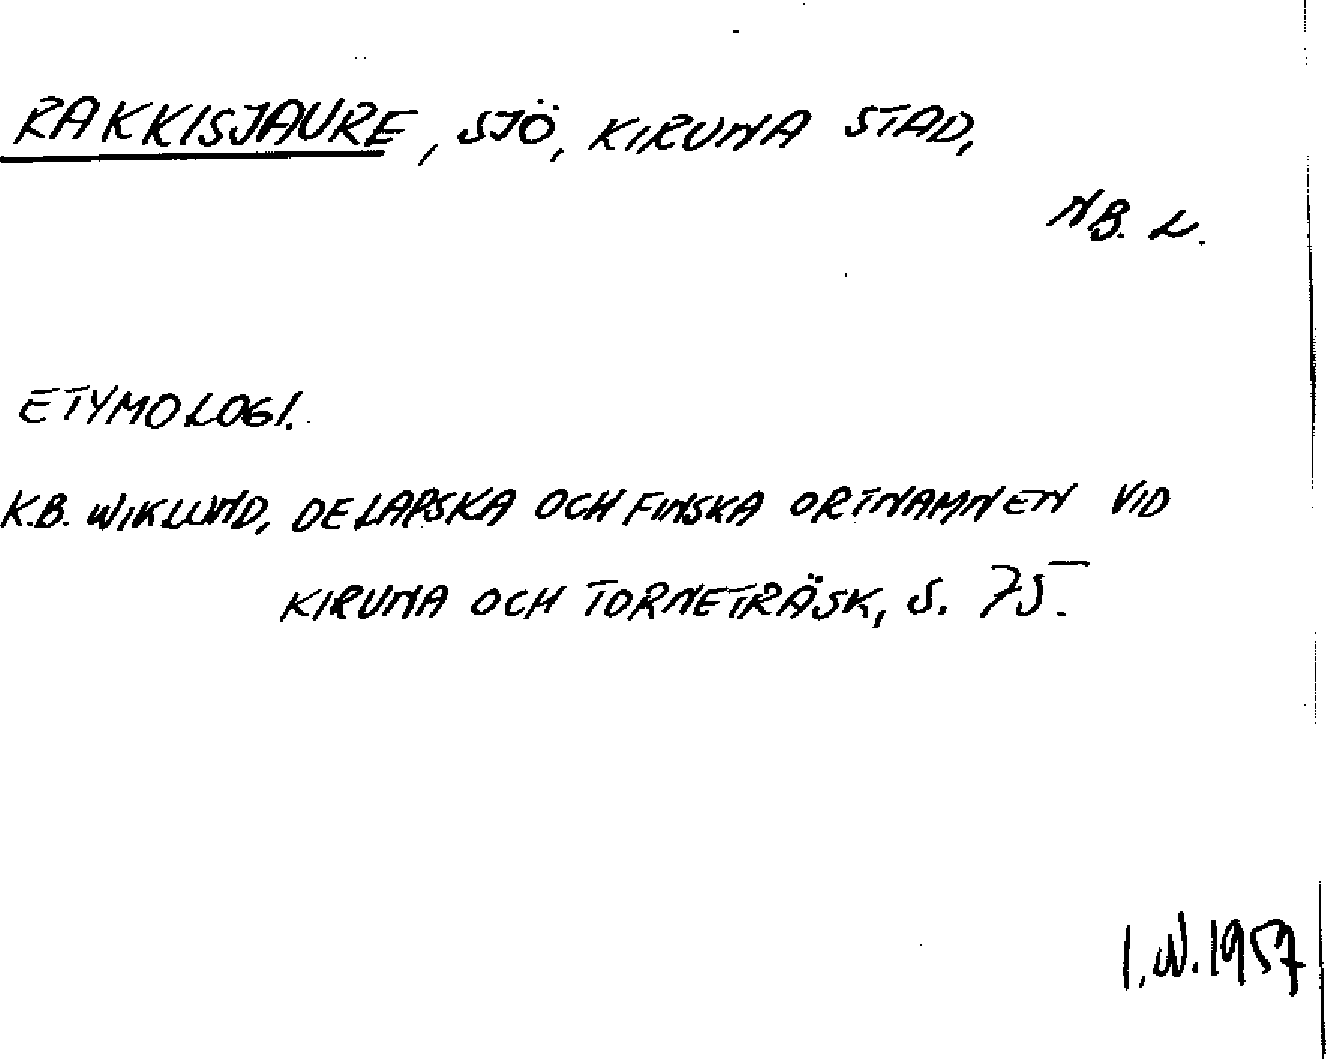 RAKKISJAURE, SJÖ, KIRUNA STAD,
NB. L.
ETYMOLOGI.
K.B. WIKLUND, DE LAPSKA OCH FINSKA ORTNAMNEN VID
KIRUNA OCH TORNETRÄSK, S. 75.
I.W. 1957